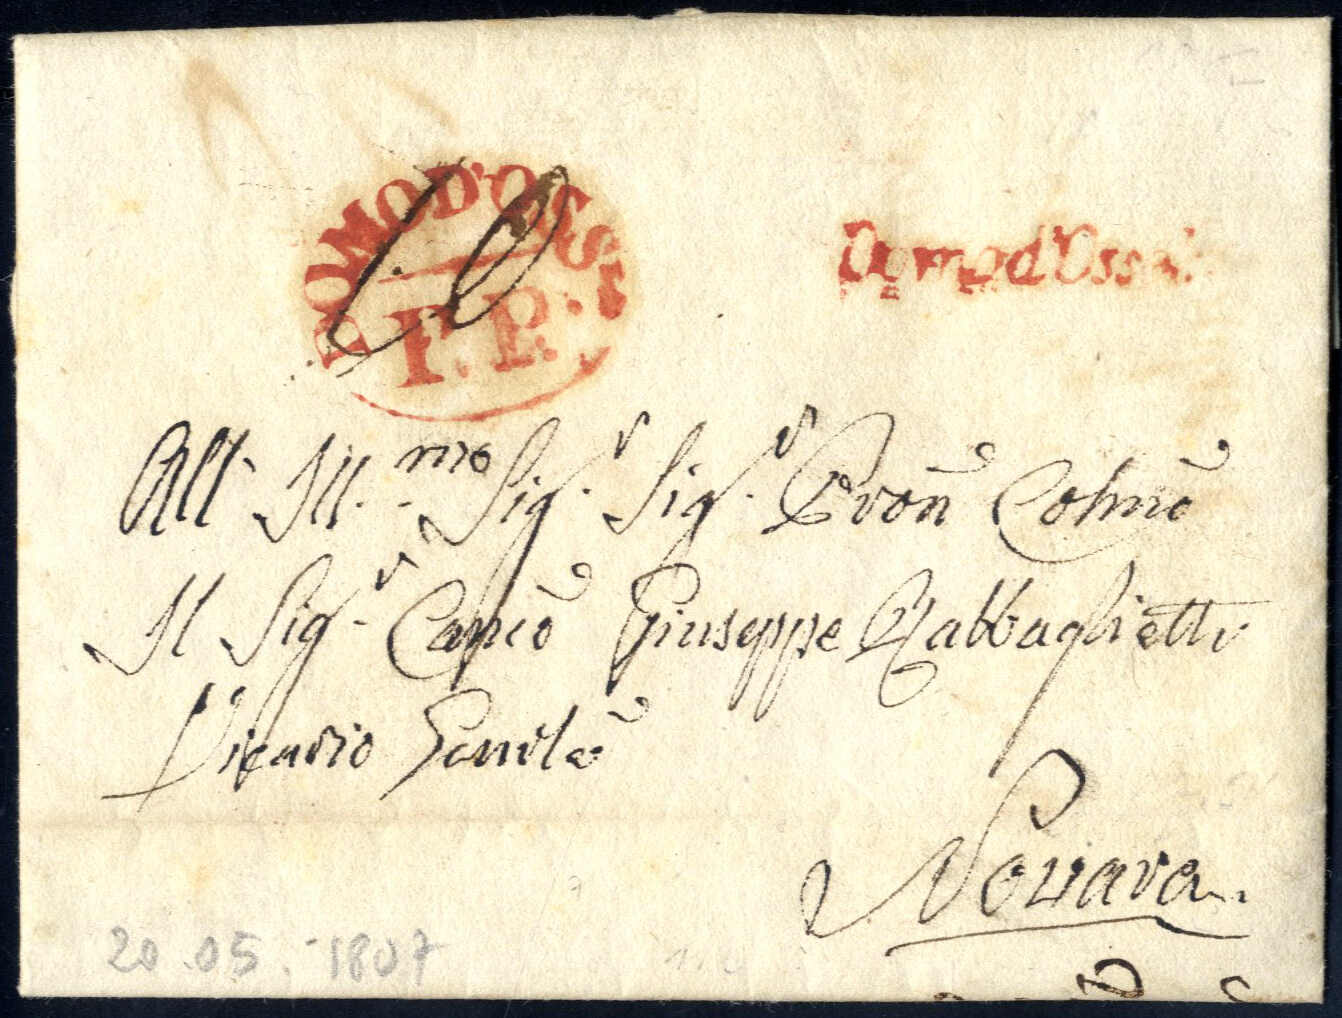 DOMOD'OSS.
P. P.
Domod'Oss
All' Ill.mo Sig.r Sig.r Pron Colmo
Il Sig.r Canco Giuseppe Rabbaglietti
Vicario
Novara
20.05.-1807